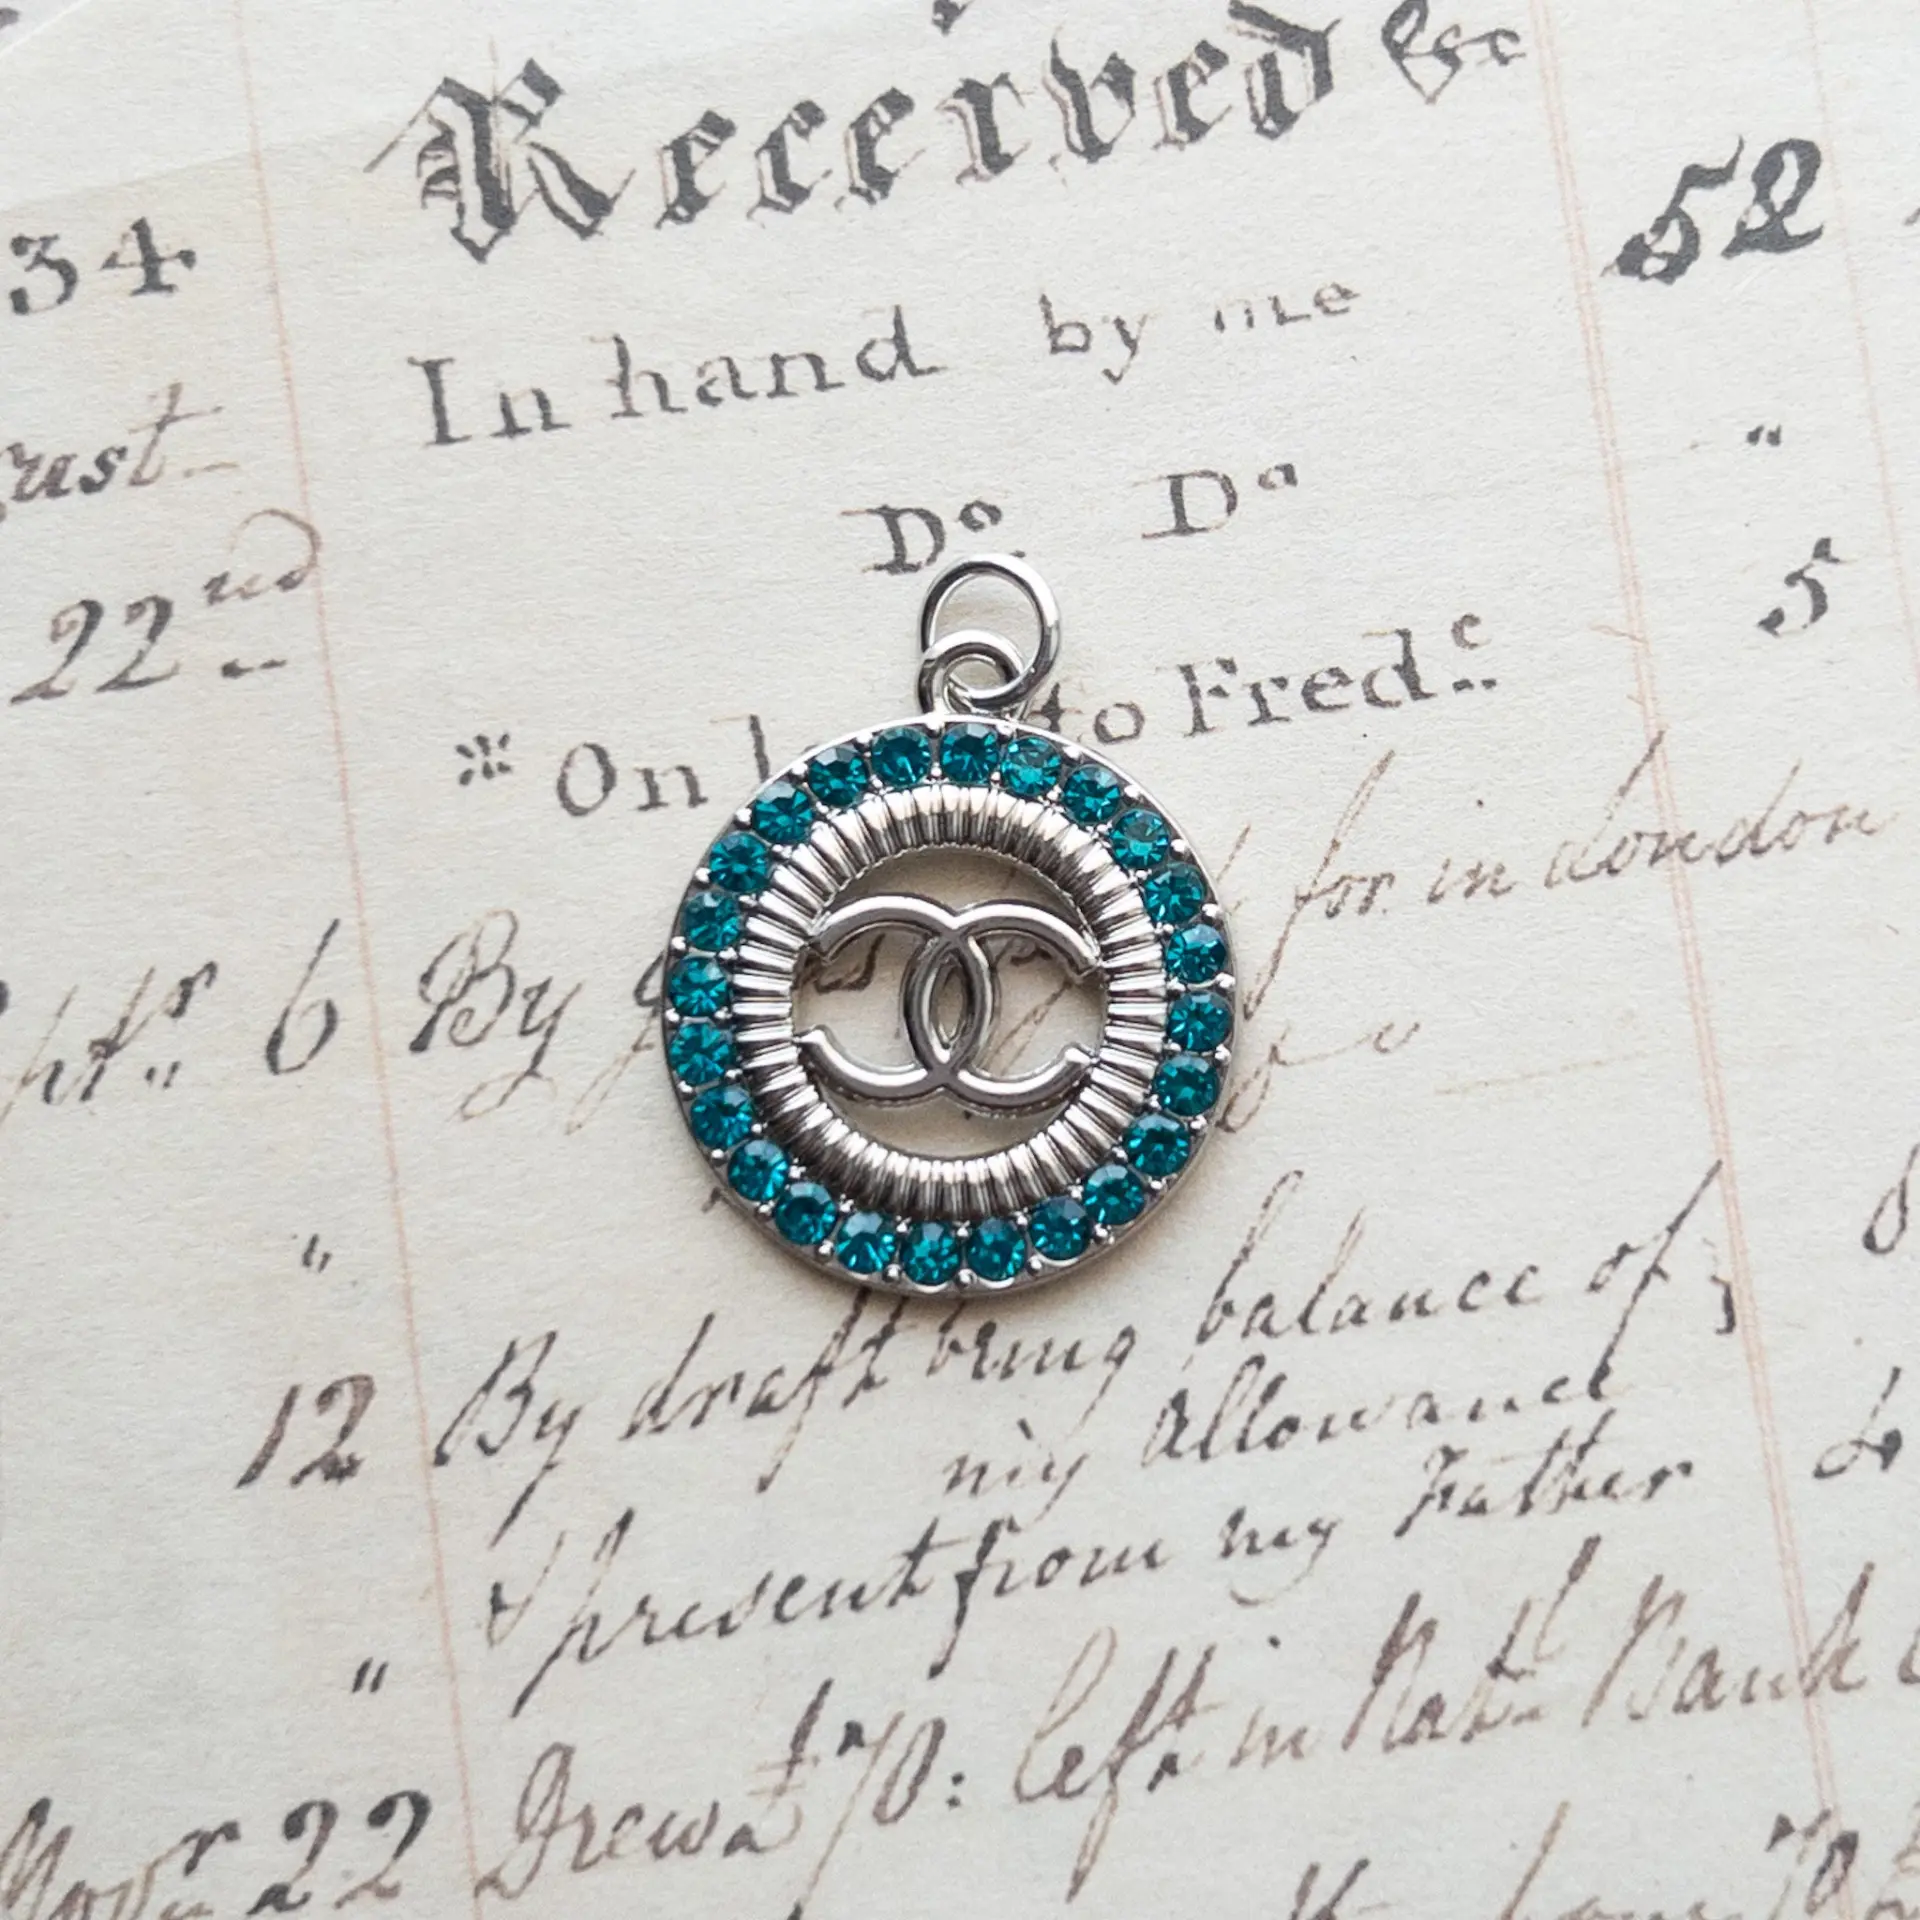 Received &c
34 In hand by me 52
ust Do Do "
22nd *On to Fredc 5
for in London
6 By
"
12 By draft being balance of }
my allowance
& present from my Father
"
Novr 22 Drew £70: left in Natl. Bank